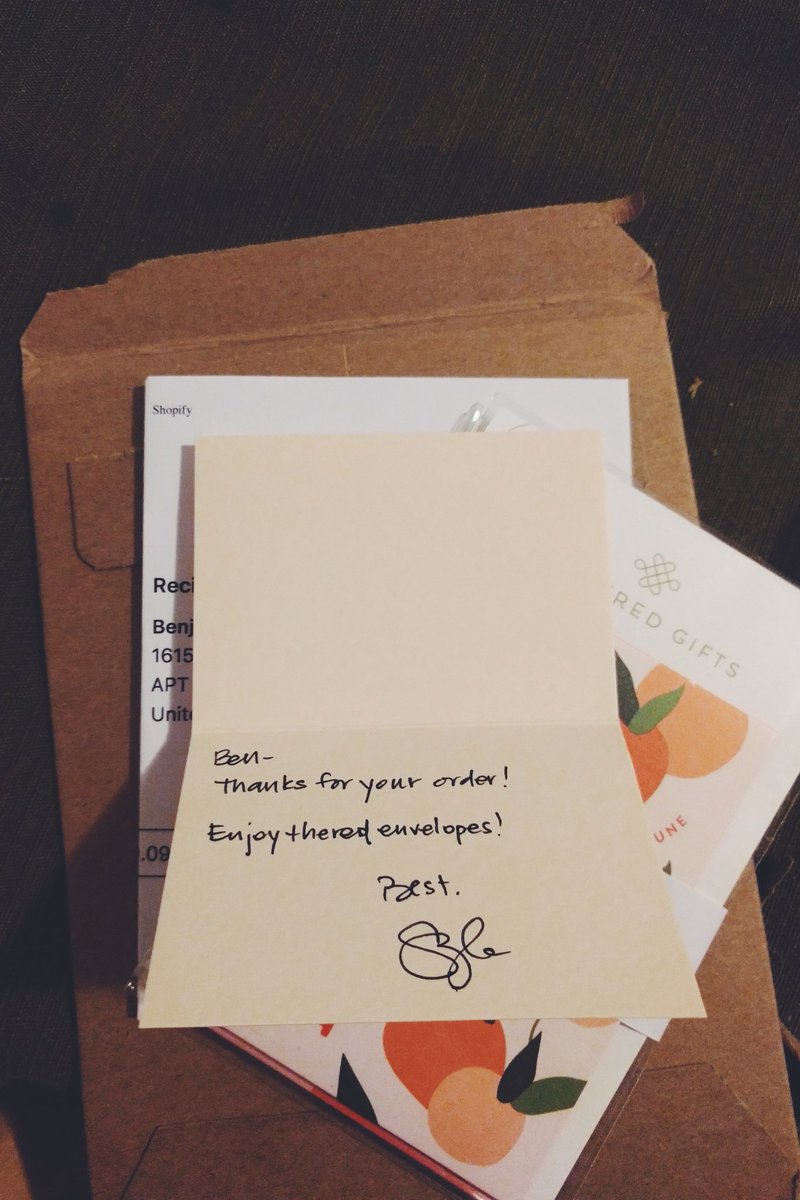 Shopify
Reci
Benj
1615
APT
Unite
.09
ERED GIFTS
UNE
Ben-
Thanks for your order!
Enjoy the red envelopes!
Best.